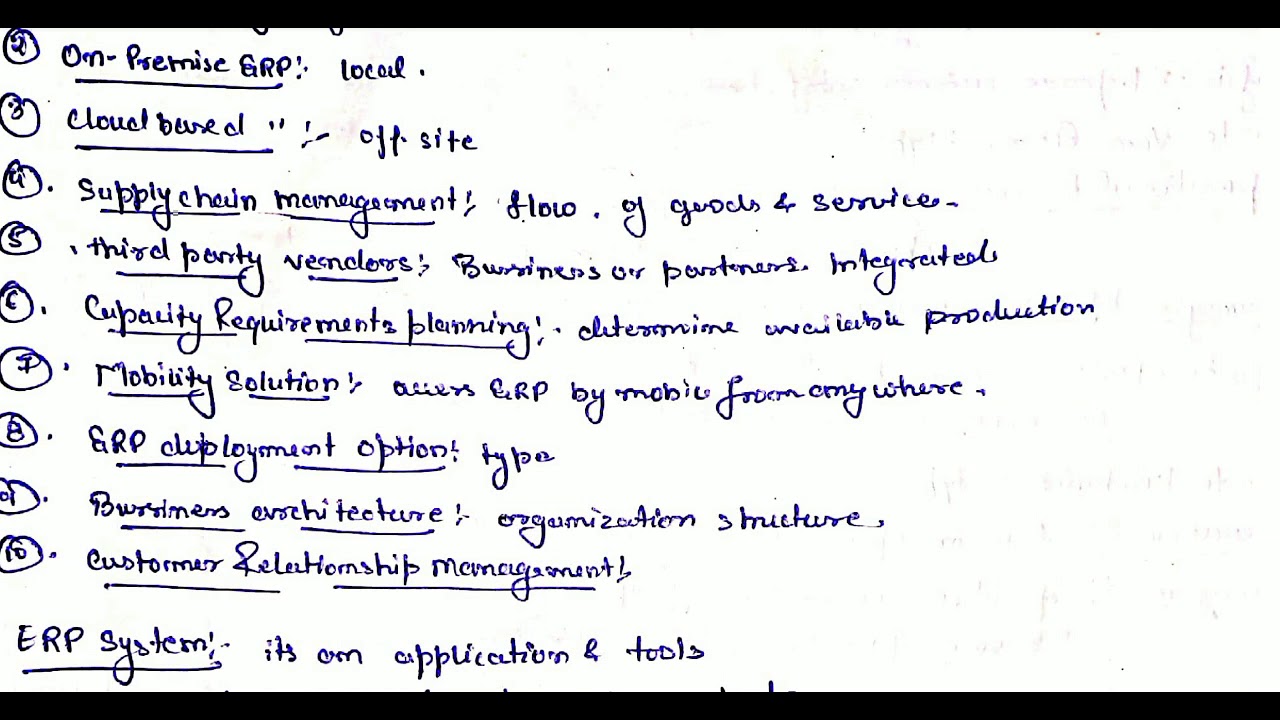 ② On-Premise ERP:- local.
③ Cloud based " :- off site
④. Supply chain management:- flow. of goods & service.
⑤. third party vendors:- Bussiness or partners. Integrated
⑥. Capacity Requirements planning:- determine available production
⑦. Mobility Solution:- access ERP by mobile from any where.
⑧. ERP deployment option:- type
⑨. Bussiness architecture:- organization structure.
⑩. Customer Relationship management:-
ERP System:- its an application & tools